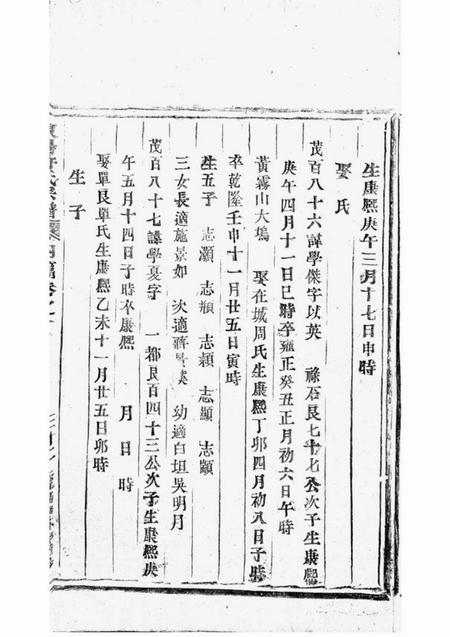 生康熙庚午三月十七日申時
娶氏
茂百八十六諱學傑字以英 祿石艮七十七公次子生康熙
庚午四月十一日巳時卒雍正癸丑正月初六日午時
黃霧山大塢 娶在城周氏生康熙丁卯四月初八日子時
卒乾隆壬申十一月廿五日寅時
生五子 志灝 志頫 志穎 志顯 志顓
三女長適施景如 次適蔣 幼適白坦吳明月
茂百八十七諱學夏字 一都艮百四十三公次子生康熙庚
午五月十四日子時卒康熙 月 日 時
娶單艮單氏生康熙乙未十一月廿五日卯時
生子